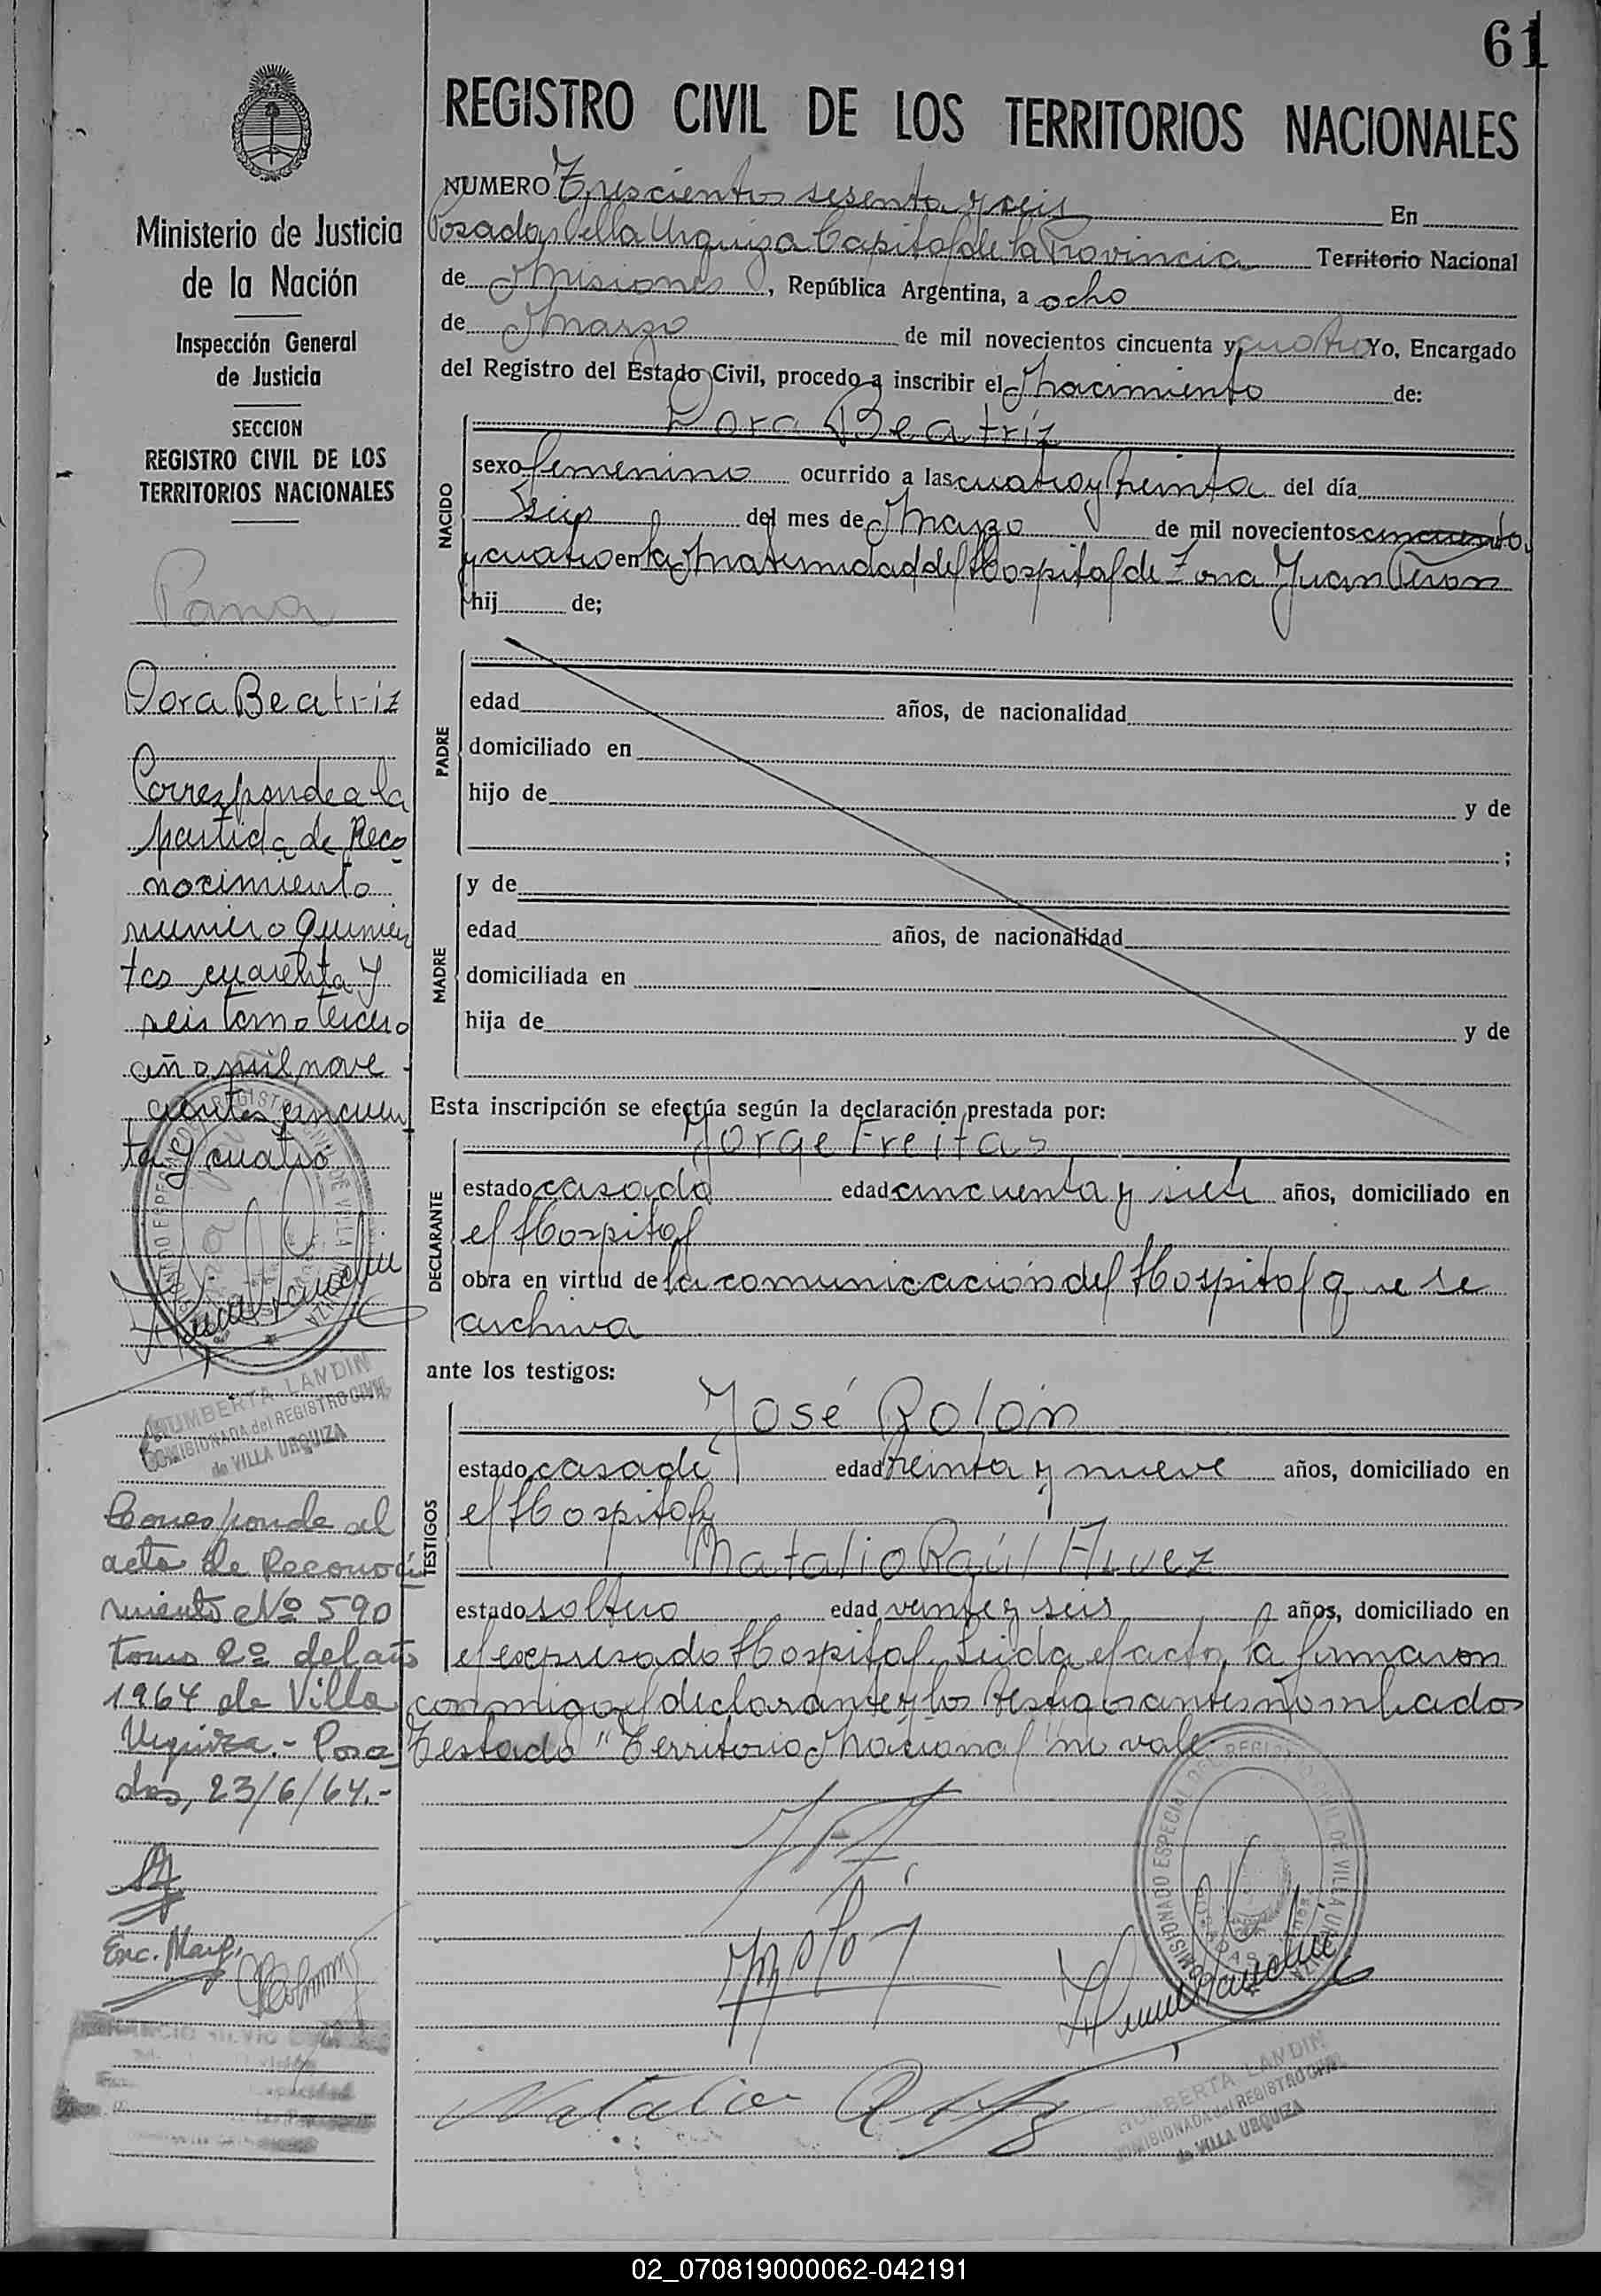 61
REGISTRO CIVIL DE LOS TERRITORIOS NACIONALES
Ministerio de Justicia
de la Nación
Inspección General
de Justicia
SECCION
REGISTRO CIVIL DE LOS
TERRITORIOS NACIONALES
Dora Beatriz
Corresponde a la
partida de Reco
nocimiento
numero Quinien
tos cuarenta y
seis tomo tercero
año mil nove
cientos cincuen
ta y cuatro
HUMBERTA LANDIN
COMISIONADA del REGISTRO CIVIL
de VILLA URQUIZA
Corresponde al
acta de Reconoci
miento Nº 590
tomo 2º del año
1964 de Villa
Urquiza.- Posa
das, 23/6/64.-
NUMERO Trescientos sesenta y seis En
Posadas Villa Urquiza Capital de la Provincia Territorio Nacional
de Misiones, República Argentina, a ocho
de Marzo de mil novecientos cincuenta y cuatro Yo, Encargado
del Registro del Estado Civil, procedo a inscribir el Nacimiento de:
NACIDO
Dora Beatriz
sexo femenino ocurrido a las cuatro y treinta del día
seis del mes de Marzo de mil novecientos cincuenta
y cuatro en la Maternidad del Hospital de Zona Juan Perón
hij de;
PADRE
edad años, de nacionalidad
domiciliado en
hijo de y de
;
MADRE
y de
edad años, de nacionalidad
domiciliada en
hija de y de
Esta inscripción se efectúa según la declaración prestada por:
DECLARANTE
Jorge Freitas
estado casado edad cincuenta y siete años, domiciliado en
el Hospital
obra en virtud de la comunicación del Hospital que se
archiva
ante los testigos:
TESTIGOS
José Rolón
estado casado edad treinta y nueve años, domiciliado en
el Hospital y
Natalio Raúl
estado soltero edad veinte y seis años, domiciliado en
el expresado Hospital. Leida el acta, la firmaron
conmigo el declarante y los testigos antes nombrados
Testado "Territorio Nacional" no vale.
Natalio
HUMBERTA LANDIN
COMISIONADA del REGISTRO CIVIL
de VILLA URQUIZA
02_070819000062-042191